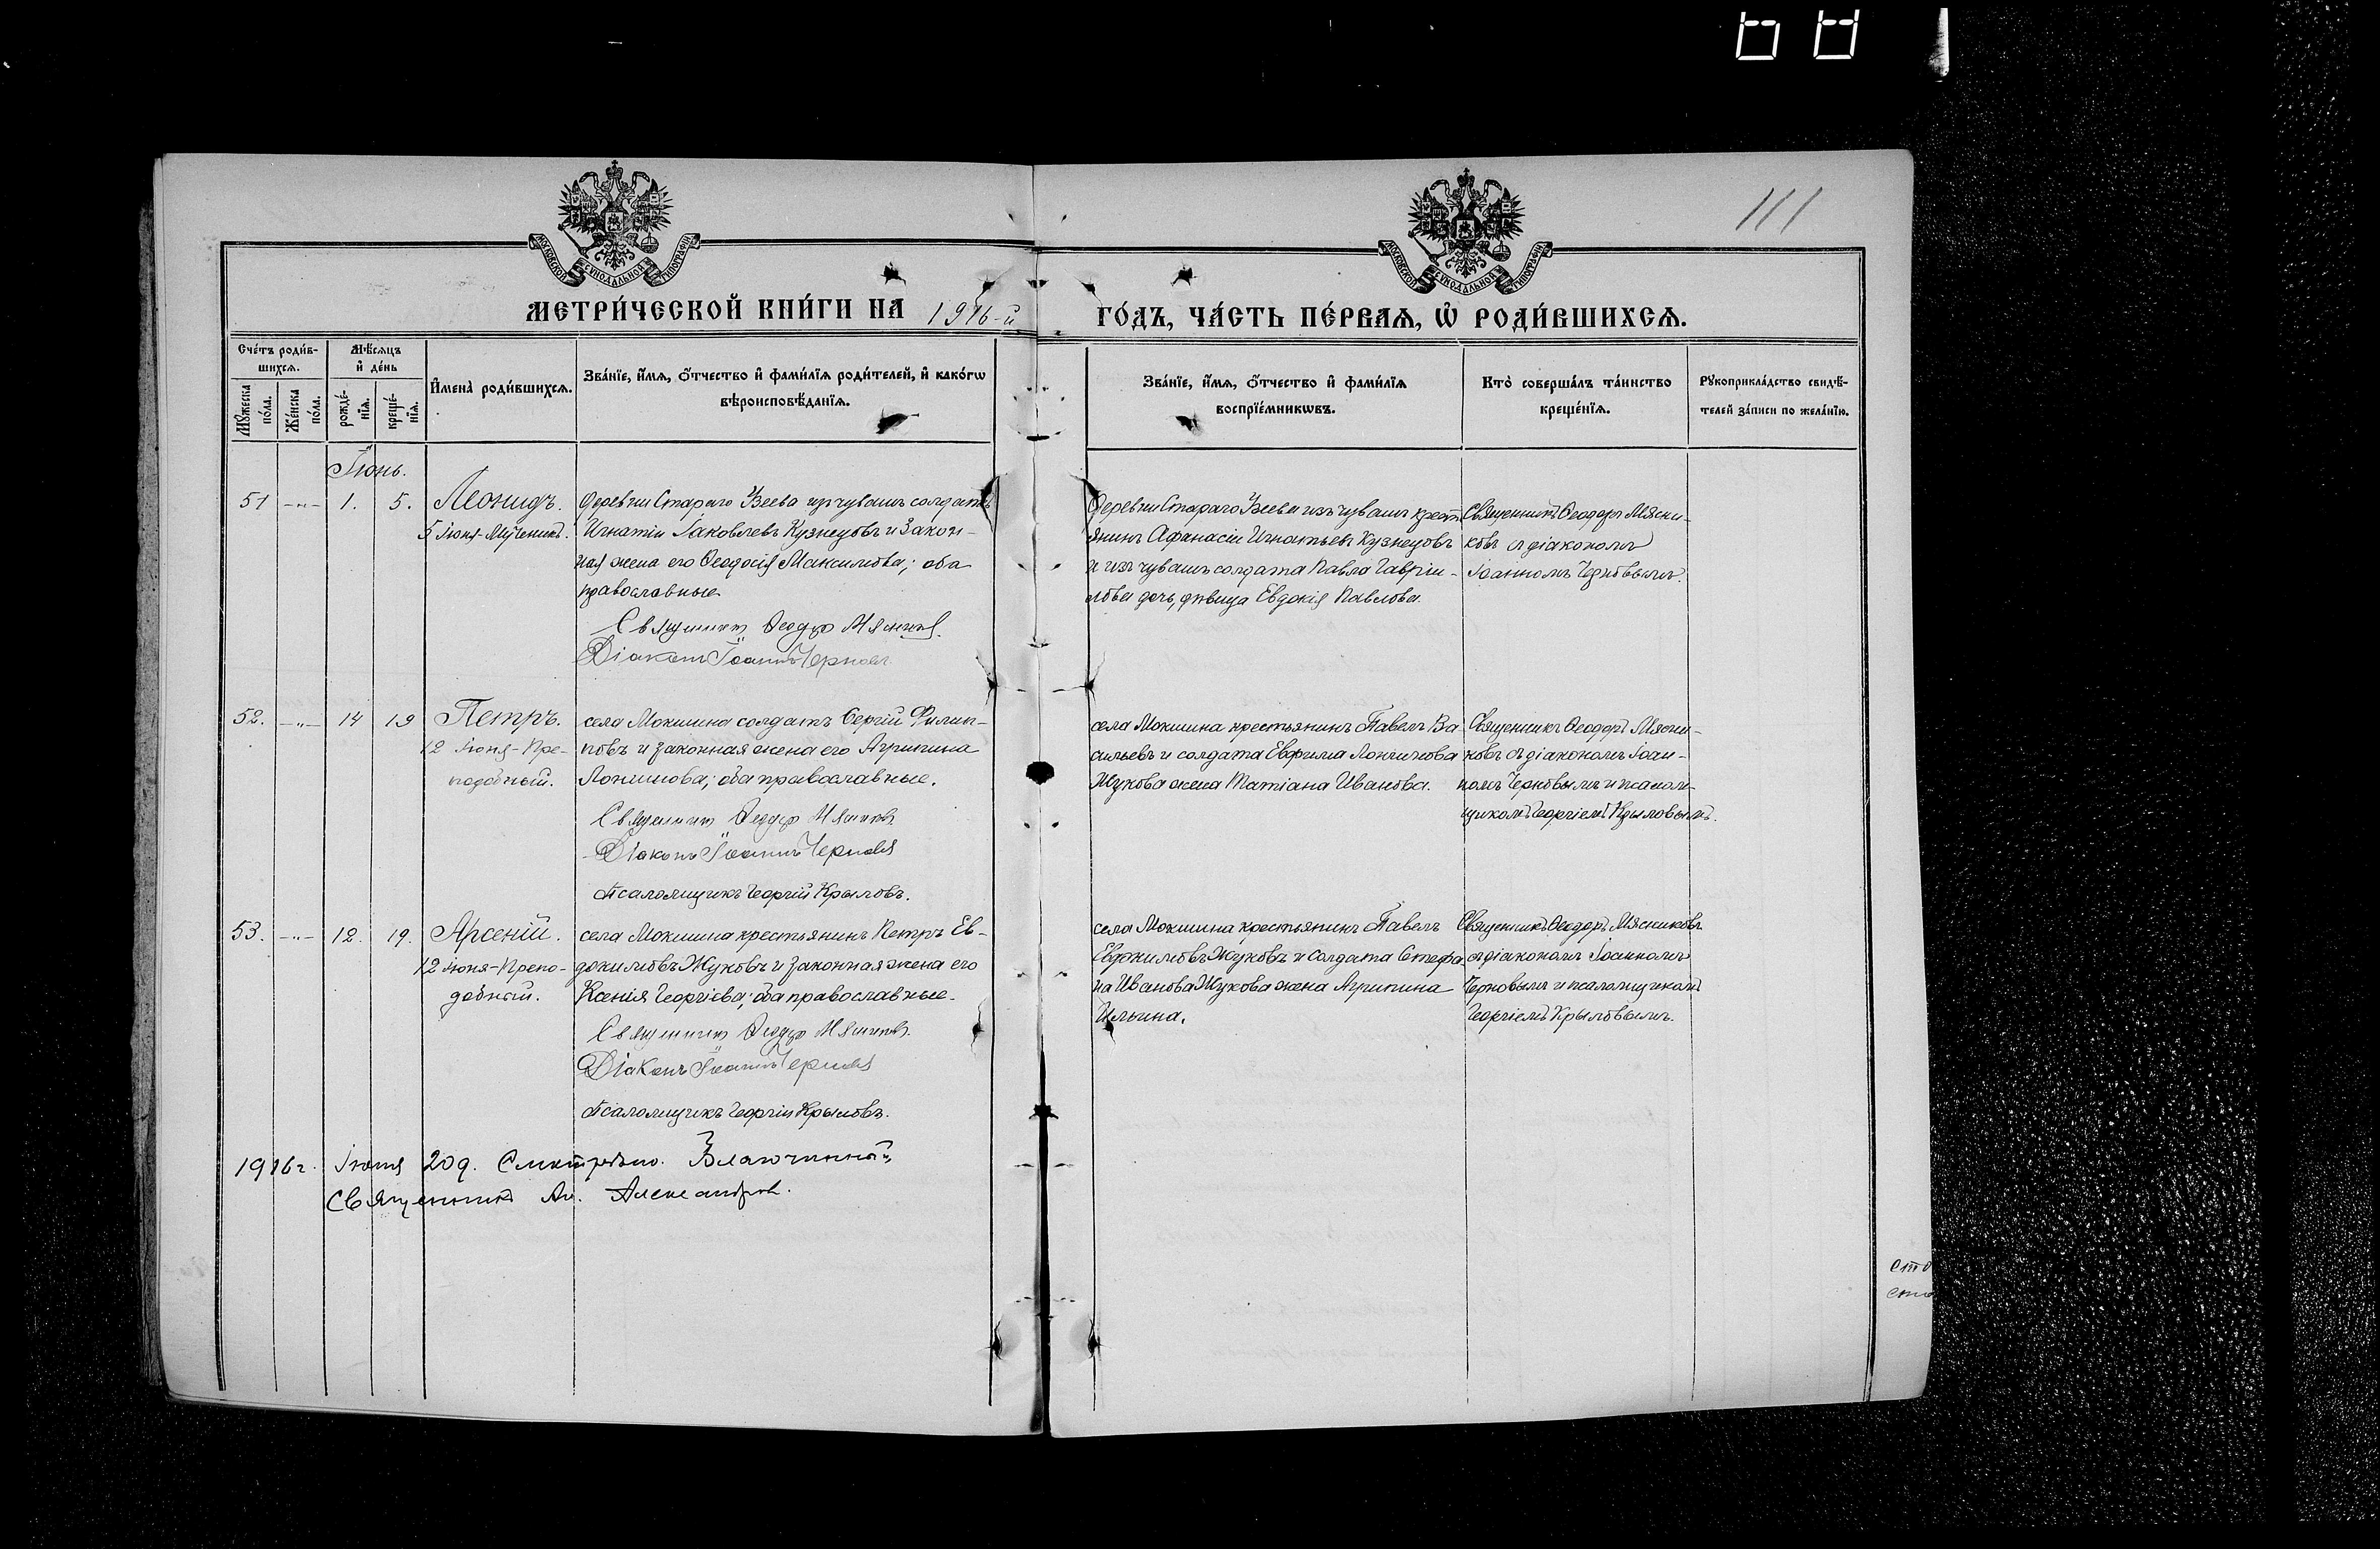 111
МОСКОВСКОЙ СѴНОДАЛЬНОЙ ТИПОГРАФІИ
МОСКОВСКОЙ СѴНОДАЛЬНОЙ ТИПОГРАФІИ
МЕТРИ́ЧЕСКОЙ КНИ́ГИ НА 1916-й
ГО́ДЪ, ЧА́СТЬ ПЕ́РВАѦ, Ѡ҆ РОДИ́ВШИХСѦ.
Сче́тъ роди́в-
шихсѧ.
Мѣ́сѧцъ
и҆ де́нь
Мꙋ́жеска по́ла.
Же́нска по́ла.
рожде́-
нїѧ.
креще́-
нїѧ.
И҆мена̀ роди́вшихсѧ.
Зва́нїе, и҆́мѧ, ѻ҆́тчество и҆ фами́лїѧ роди́телей, и҆ како́гѡ
вѣроисповѣ́данїѧ.
Зва́нїе, и҆́мѧ, ѻ҆́тчество и҆ фами́лїѧ
воспрїе́мникѡвъ.
Кто̀ соверша́лъ та́инство
креще́нїѧ.
Рꙋкоприкла́дство свидѣ́-
телей за́писи по жела́нїю.
Іюнь.
51 -„- 1. 5. Леонидъ.
5 Іюня-Мученикъ.
деревни Стараго Узеева изъ чувашъ солдатъ
Игнатій Іаковлевъ Кузнецовъ и закон-
ная жена его Ѳеодосія Максимова; оба
православные.
Священникъ Ѳеодоръ Мясниковъ.
Діаконъ Іоаннъ Черновъ
Деревни Стараго Узеева изъ чувашъ крест
янинъ Афанасій Игнатьевъ Кузнецовъ
и изъ чувашъ солдата Павла Гаврии-
лова дочь, дѣвица Евдокія Павлова.
Священникъ Ѳеодоръ Мясни-
ковъ съ діакономъ
Іоанномъ Черновымъ.
52. -„- 14 19 Петръ.
12 Іюня-Пре-
подобный.
села Мокшина солдатъ Сергій Филип-
повъ и законная жена его Агрипина
Лонгинова; оба православные.
Священникъ Ѳеодоръ Мясниковъ
Діаконъ Іоаннъ Черновъ
Псаломщикъ Георгій Крыловъ.
села Мокшина крестьянинъ Павелъ Ва
сильевъ и солдата Евфима Лонгинова
Жукова жена Татіана Иванова.
Священникъ Ѳеодоръ Мясни-
ковъ съ діакономъ Іоан-
номъ Черновымъ и псалом-
щикомъ Георгіемъ Крыловымъ.
53. -„- 12. 19. Арсеній.
12 іюня-Препо-
добный.
села Мокшина крестьянинъ Петръ Ев-
докимовъ Жуковъ и законная жена его
Ксенія Георгіева; оба православные.
Священникъ Ѳеодоръ Мясниковъ
Діаконъ Іоаннъ Черновъ
Псаломщикъ Георгій Крыловъ.
села Мокшина крестьянинъ Павелъ
Евдокимовъ Жуковъ и солдата Стефа
на Иванова Жукова жена Агрипина
Ильина.
Священникъ Ѳеодоръ Мясниковъ
съ діакономъ Іоанномъ
Черновымъ и псаломщикомъ
Георгіемъ Крыловымъ.
1916 г. Іюня 20 д. Смотрѣно. Благочинный,
Священникъ Ал. Александров.